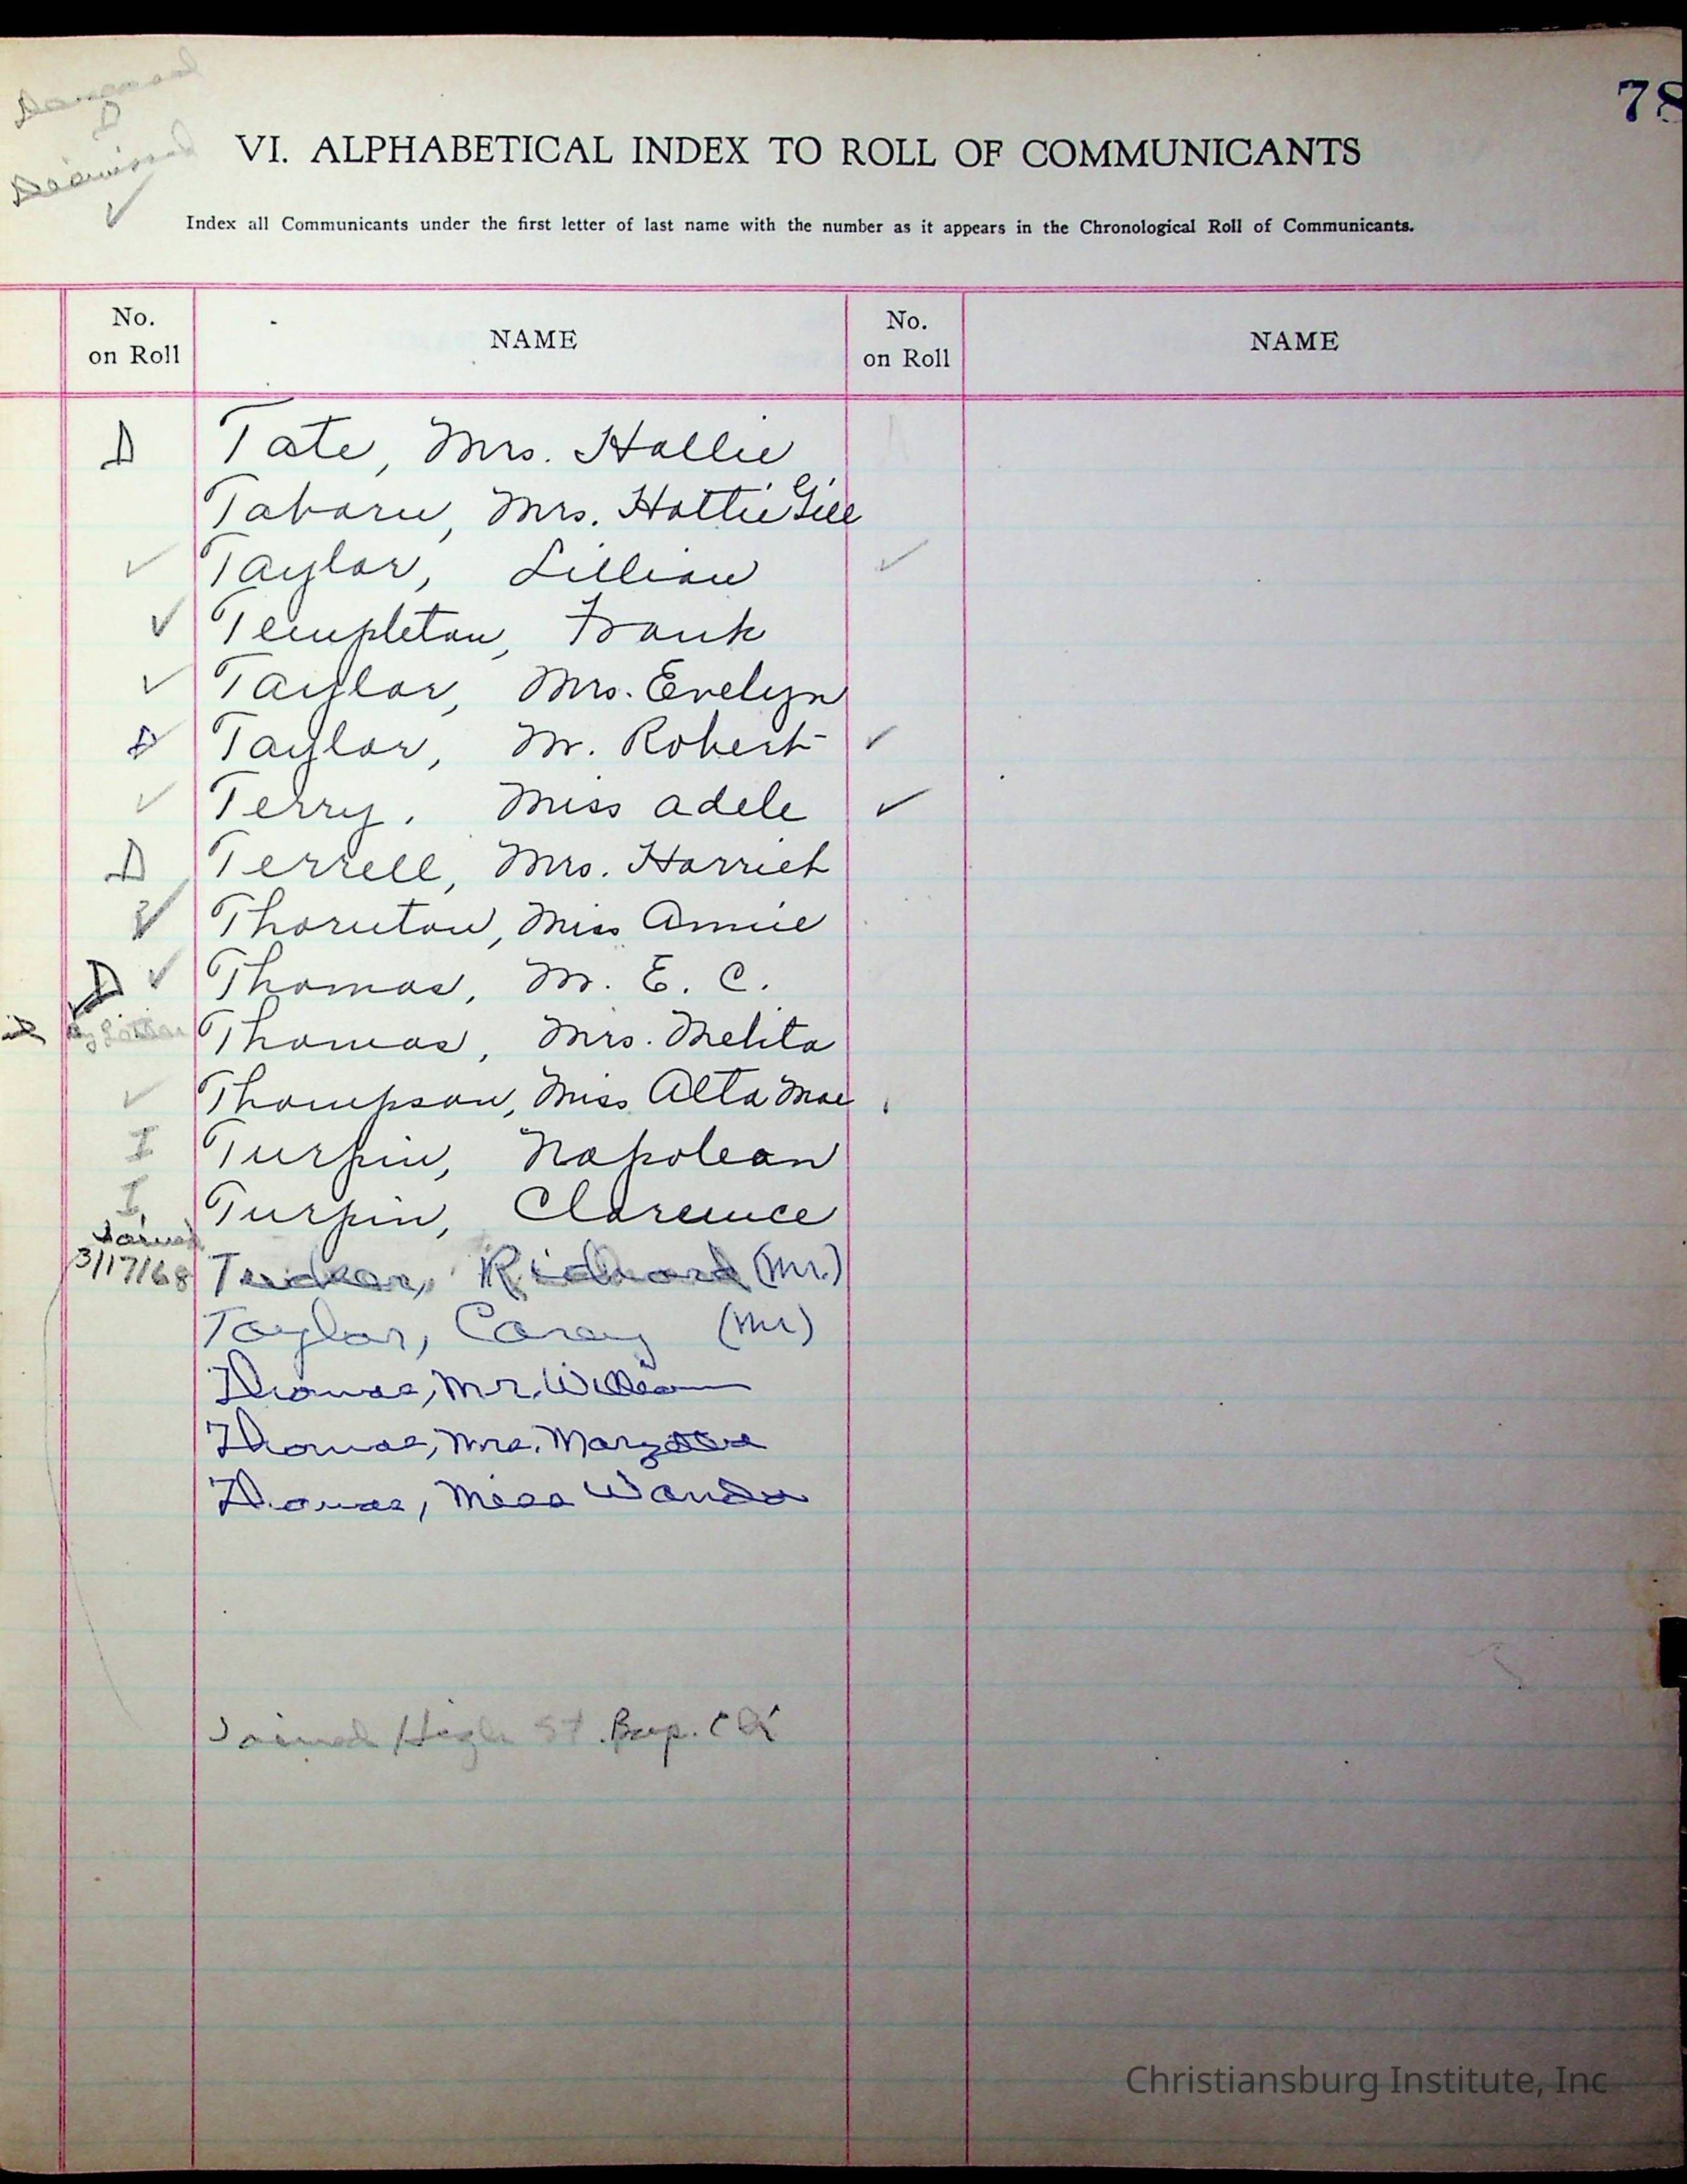 78
Deceased
D
Dismissed
✓
VI. ALPHABETICAL INDEX TO ROLL OF COMMUNICANTS
Index all Communicants under the first letter of last name with the number as it appears in the Chronological Roll of Communicants.
No. on Roll NAME No. on Roll NAME
D Tate, Mrs. Hallie
Taborn, Mrs. Hattie Gill
✓ Taylor, Lillian ✓
✓ Templeton, Frank
✓ Taylor, Mrs. Evelyn
D Taylor, Mr. Robert ✓
✓ Terry, Miss Adele ✓
D Terrell, Mrs. Harriet
✓ Thornton, Miss Annie
D ✓ Thomas, Mr. E. C.
Thomas, Mrs. Melita
✓ Thompson, Miss Alta Mae
I Turpin, Napolean
I Turpin, Clarence
Joined
3/17/68 Tucker, Richard (Mr.)
Taylor, Carey (Mr)
Thomas, Mr. William
Thomas, Mrs. Margatte
Thomas, Miss Wanda
Joined High St. Bap. Ch
Christiansburg Institute, Inc